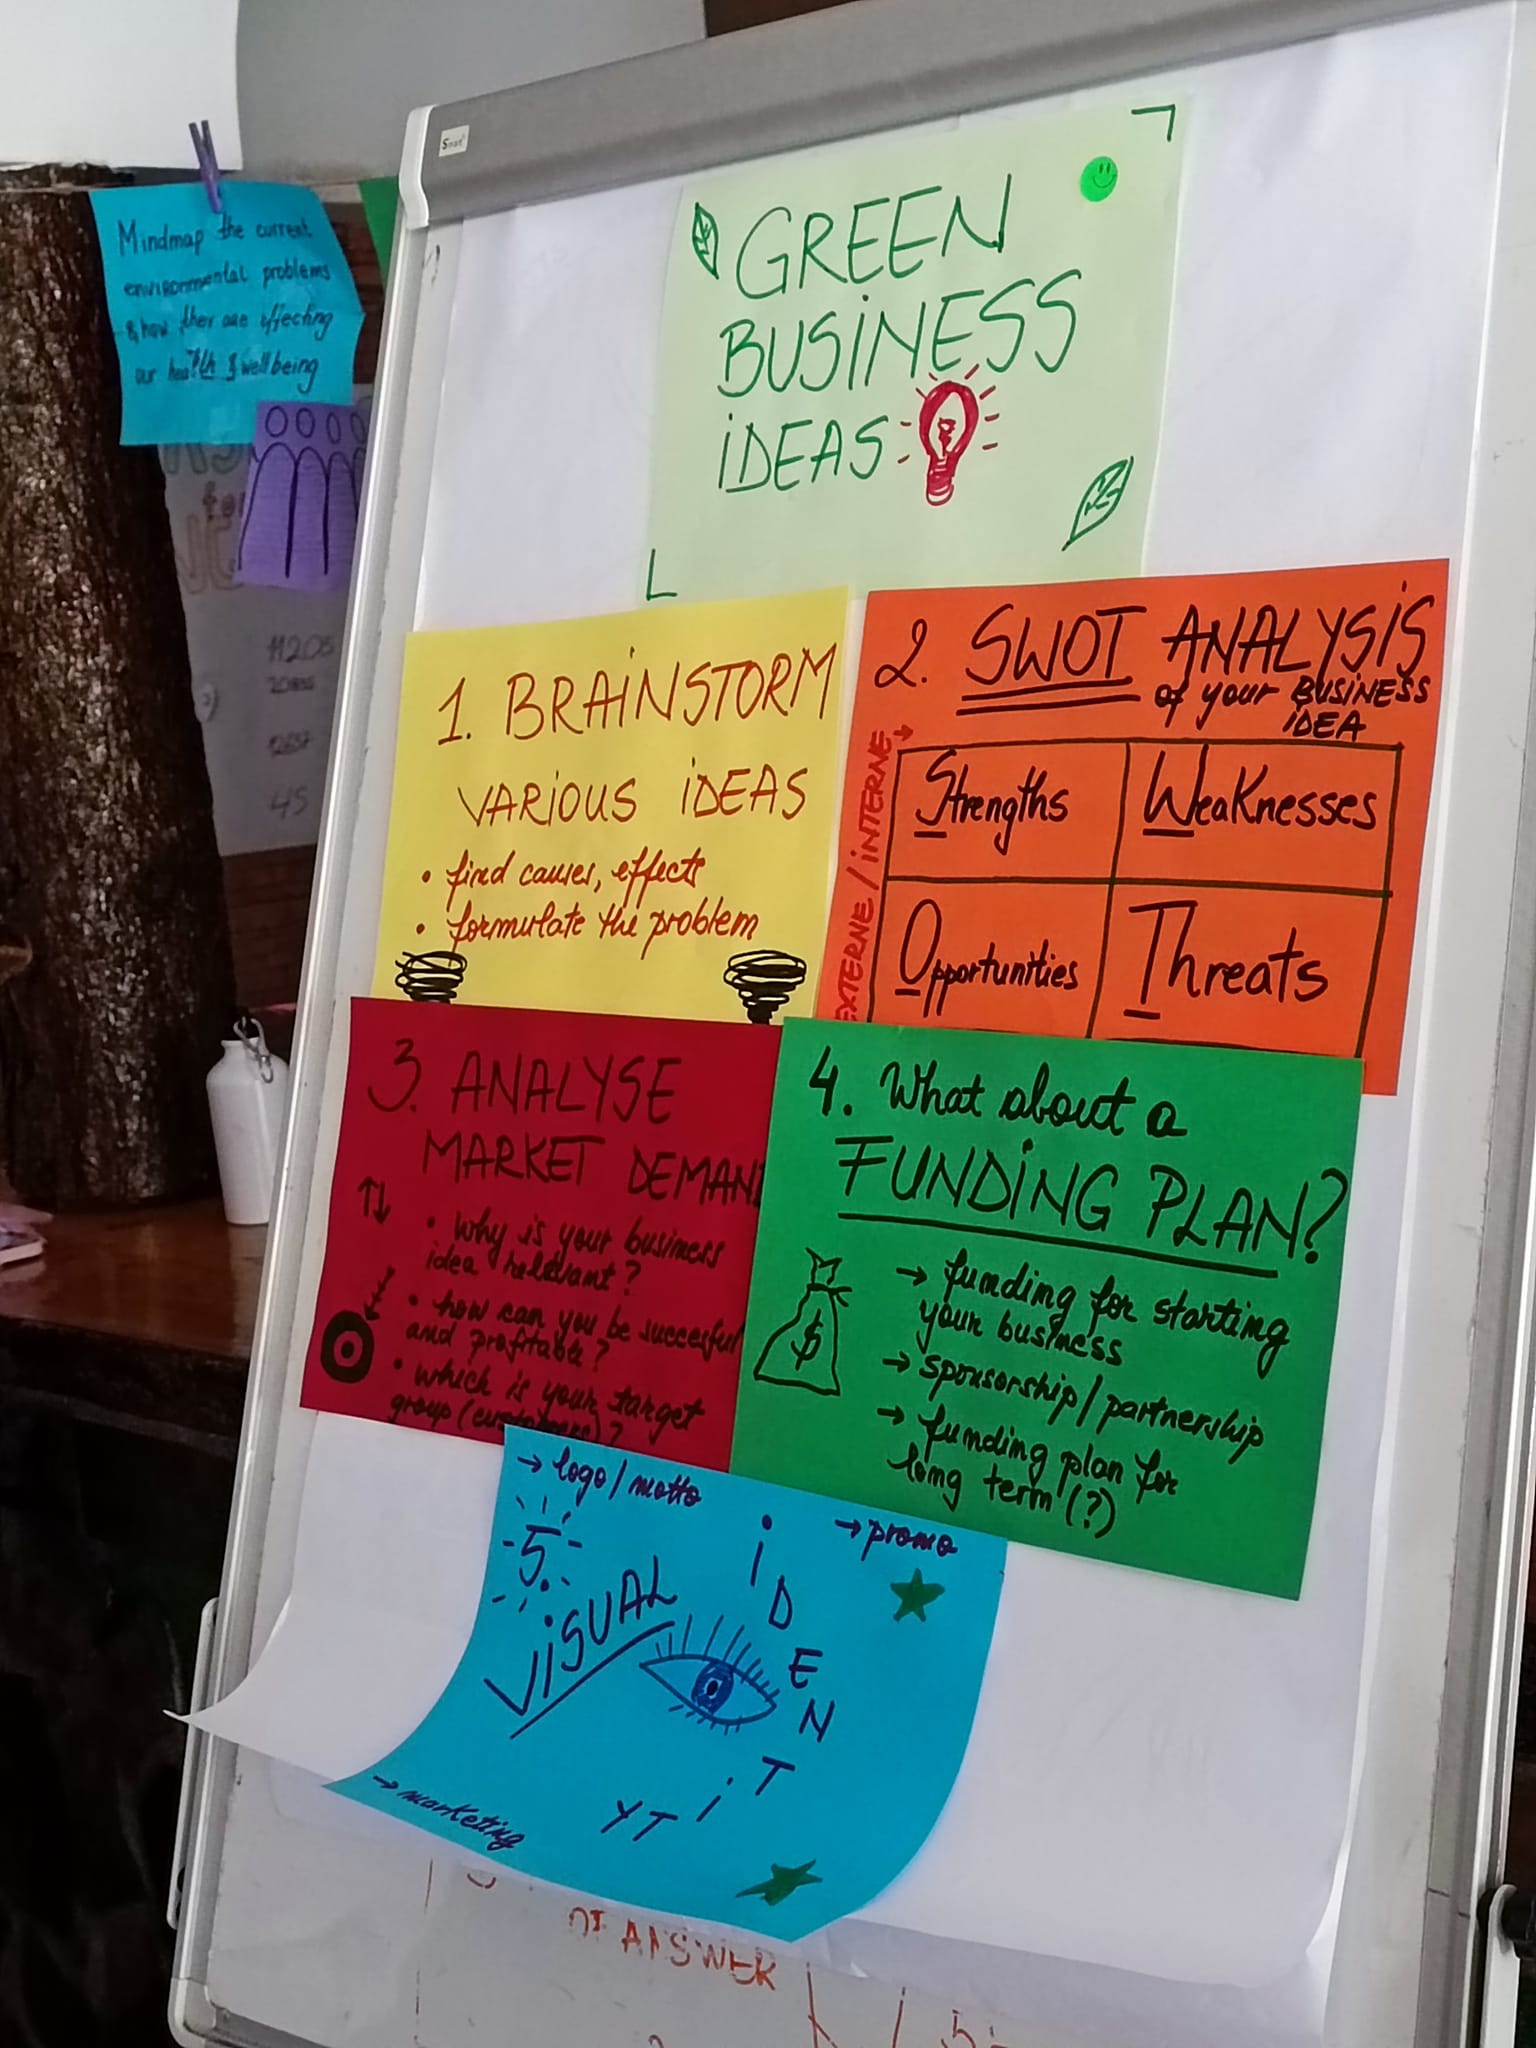 Smart
Mindmap the current
environmental problems
& how ther are effecting
our health & wellbeing
11205
45
GREEN
BUSINESS
IDEAS
1. BRAINSTORM
VARIOUS IDEAS
• find causes, effects
• formulate the problem
2. SWOT ANALYSIS
of your BUSINESS
IDEA
EXTERNE / INTERNE
Strengths
Weaknesses
Opportunities
Threats
3. ANALYSE
MARKET DEMAND
• why is your business
idea relevant?
• how can you be succesful
and profitable?
• which is your target
group (customers)?
4. What about a
FUNDING PLAN?
$
→ funding for starting
your business
→ sponsorship/partnership
→ funding plan for
long term (?)
→ logo/motto
→ promo
5.
VISUAL
IDENTITY
→ marketing
OF ANSWER